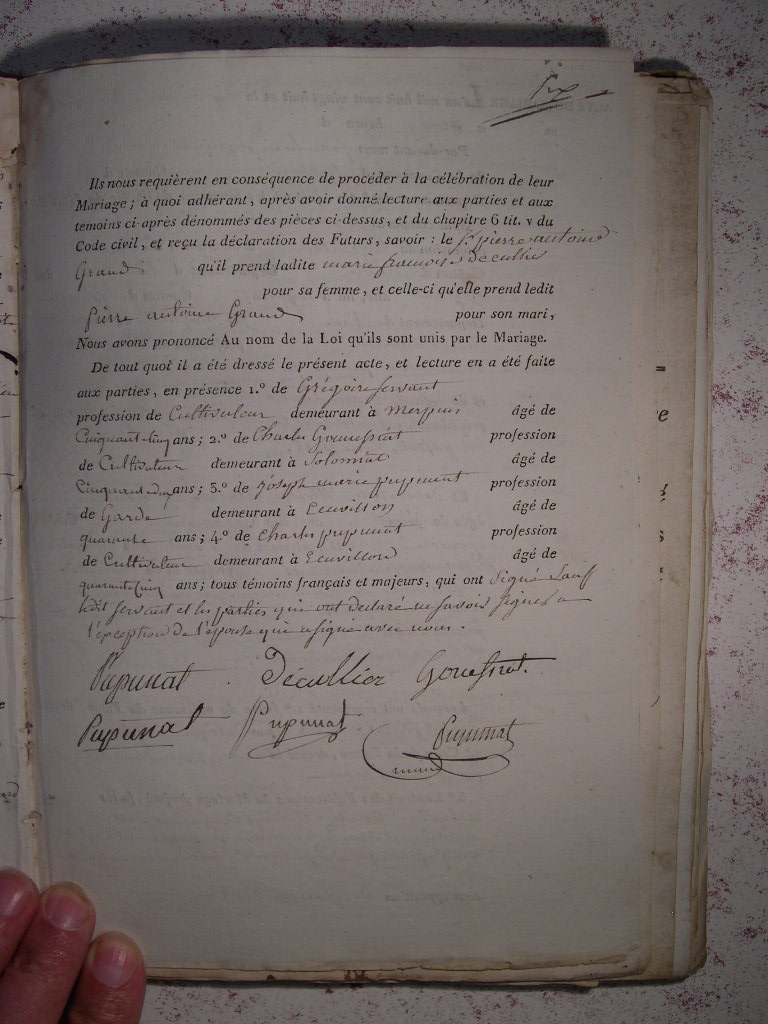 Ils nous requièrent en conséquence de procéder à la célébration de leur
Mariage ; à quoi adhérant, après avoir donné lecture aux parties et aux
témoins ci-après dénommés des pièces ci-dessus, et du chapitre 6 tit. v du
Code civil, et reçu la déclaration des Futurs, savoir : le Sr pierre antoine
Grand qu'il prend ladite marie françoise decullier
pour sa femme, et celle-ci qu'elle prend ledit
pierre antoine Grand pour son mari,
Nous avons prononcé Au nom de la Loi qu'ils sont unis par le Mariage.
De tout quoi il a été dressé le présent acte, et lecture en a été faite
aux parties, en présence 1.º de Grégoire servant
profession de Cultivateur demeurant à âgé de
Cinquant Cinq ans ; 2.º de Charles profession
de Cultivateur demeurant à Solomiat âgé de
ans ; 3.º de joseph marie pupunat profession
de Garde demeurant à Ecuvillon âgé de
quarante ans ; 4.º de Charles pupunat profession
de Cultivateur demeurant à Ecuvillon âgé de
quarante Cinq ans ; tous témoins français et majeurs, qui ont signé sauf
ledit servant et les parties qui ont déclaré ne savoir signer a
l'éxception de l'épouse qui a signé avec nous.
Pupunat . Décullier Gouffrat.
Pupunat Pupunat Pupunat
maire